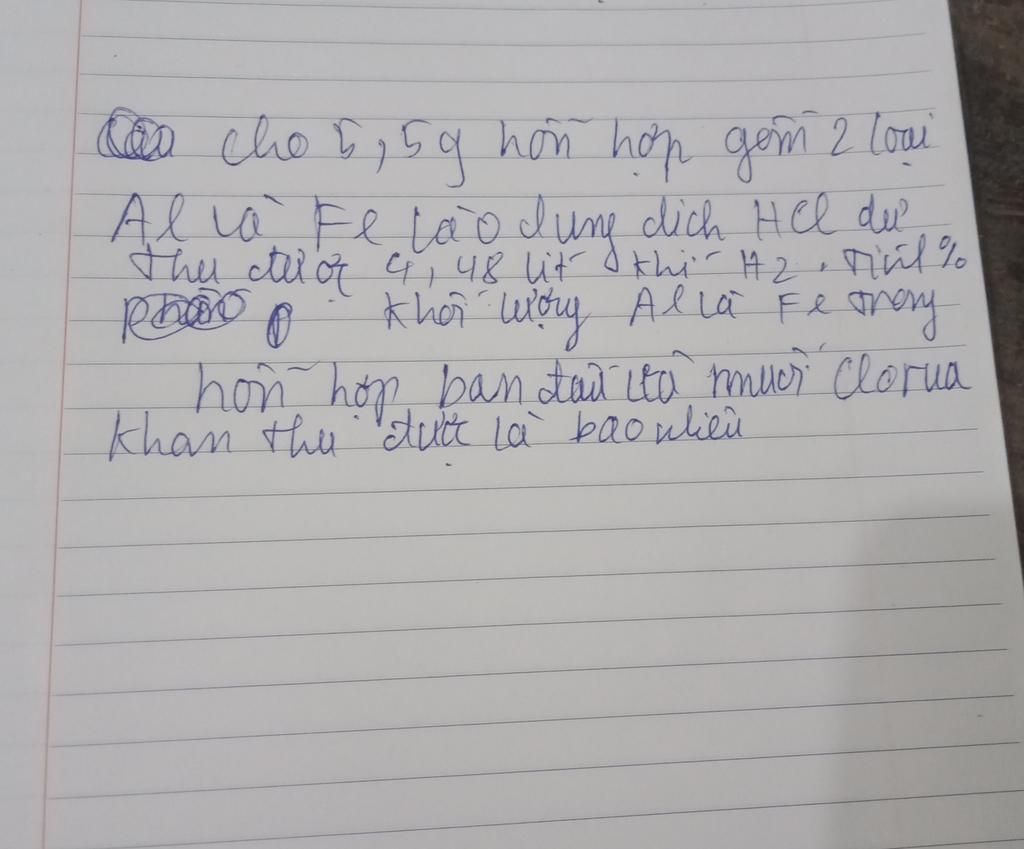 cho 5,5g hỗn hợp gồm 2 loại
Al và Fe vào dung dịch HCl dư
thu được 4,48 lít khí H2. Tính %
khối lượng Al và Fe trong
hỗn hợp ban đầu và muối Clorua
khan thu được là bao nhiêu